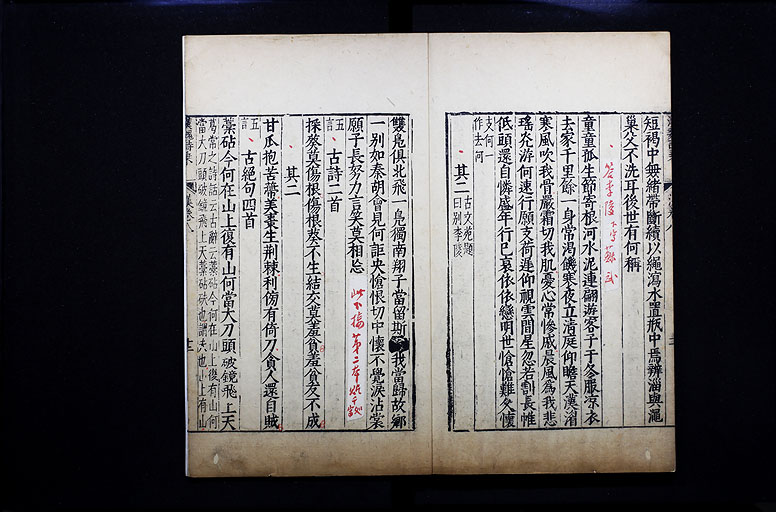 短褐中無緒帶斷續以繩瀉水置瓶中焉辨淄與澠
巢父不洗耳後世有何稱
答李陵
童童孤生節寄根河水泥連翩游客子于冬服凉衣
去家千里餘一身常渴饑寒夜立清庭仰瞻天漢湄
寒風吹我骨嚴霜切我肌憂心常慘戚晨風為我悲
瑤光游何速行願支荷遲仰視雲間星忽若割長帷
低頭還自憐盛年行已衰依依戀明世愴愴難久懷
支何一
作去何
其二
古文苑題
曰别李陵
雙鳧俱北飛一鳧獨南翔子當留斯館我當歸故鄉
一别如秦胡會見何詎央愴恨切中懷不覺淚沾裳
願子長努力言笑莫相忘
五言
古詩二首
採葵莫傷根傷根葵不生結交莫羞貧羞貧友不成
其二
甘瓜抱苦蔕美棗生荆棘利傍有倚刀貪人還自賊
五言
古絕句四首
藁砧今何在山上復有山何當大刀頭破鏡飛上天
葛常之詩話云古辭云藁砧今何在山上復有山何
當大刀頭破鏡飛上天藁砧砆也謂夫也山上有山